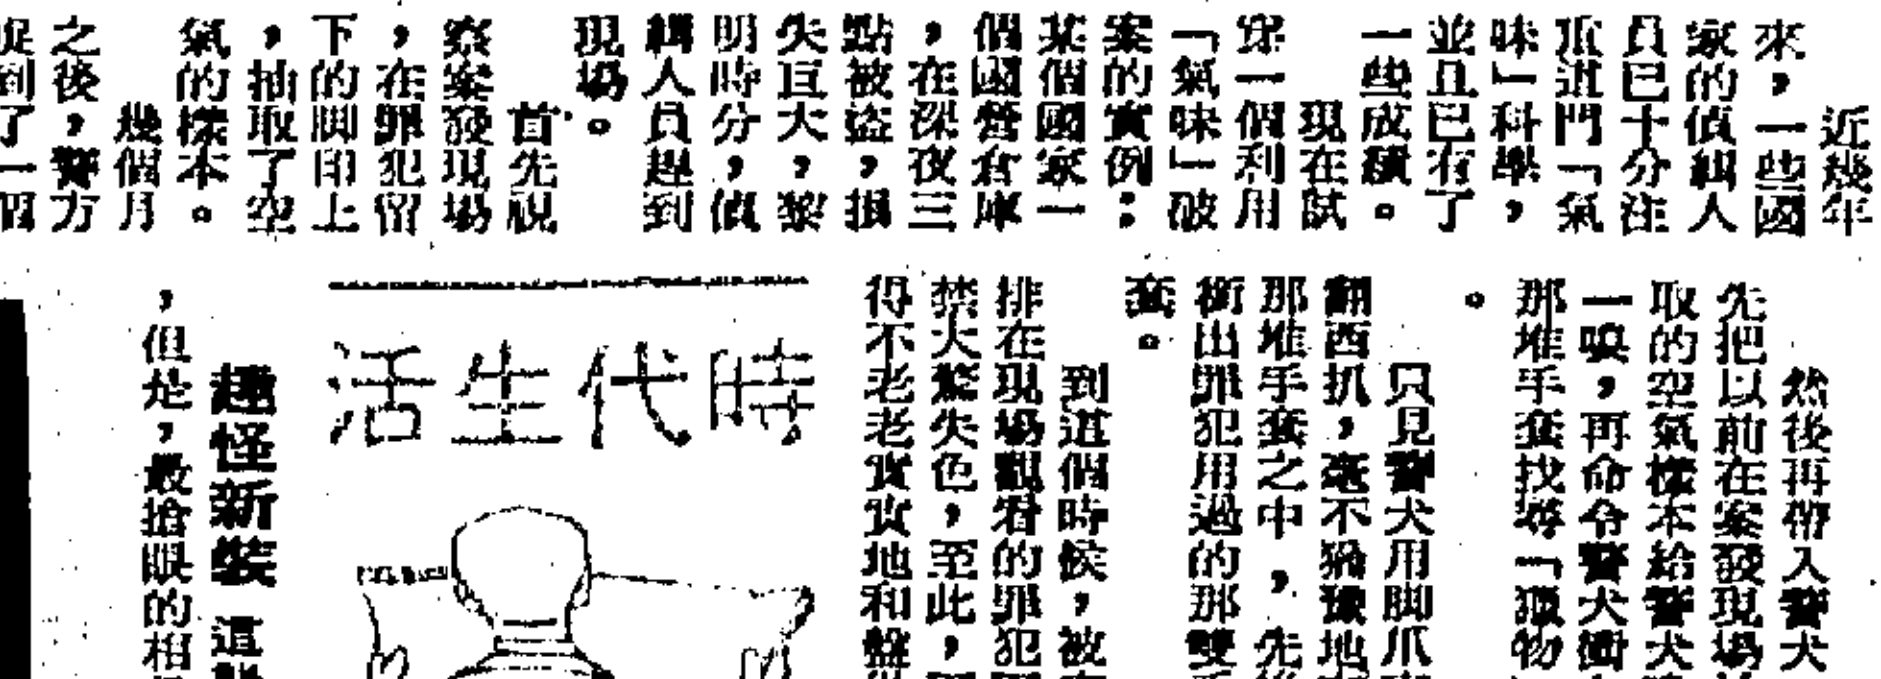 近幾年
來，一些國
家的偵緝人
員已十分注
重這門「氣
味」科學，
並且已有了
一些成績。
現在試
穿一個利用
「氣味」破
案的實例：
某個國家一
個國營倉庫
，在深夜三
點被盜，損
失巨大，黎
明時分，偵
緝人員趕到
現場。
首先視
察案發現場
，在罪犯留
下的脚印上
，抽取了空
氣的樣本。
幾個月
之後，警方
捉到了一個
然後再帶入警犬
先把以前在案發現場
取的空氣樣本給警犬
一嗅，再命令警犬衝
那堆手套找尋「獵物
。
只見警犬用脚爪
翻西扒，毫不猶豫地
那堆手套之中，先後
銜出罪犯用過的那雙
套。
到這個時侯，被
排在現場觀看的罪犯
禁大驚失色，至此，
得不老老實實地和盤
時代生活
趣怪新裝 這
，但是，最搶眼的相